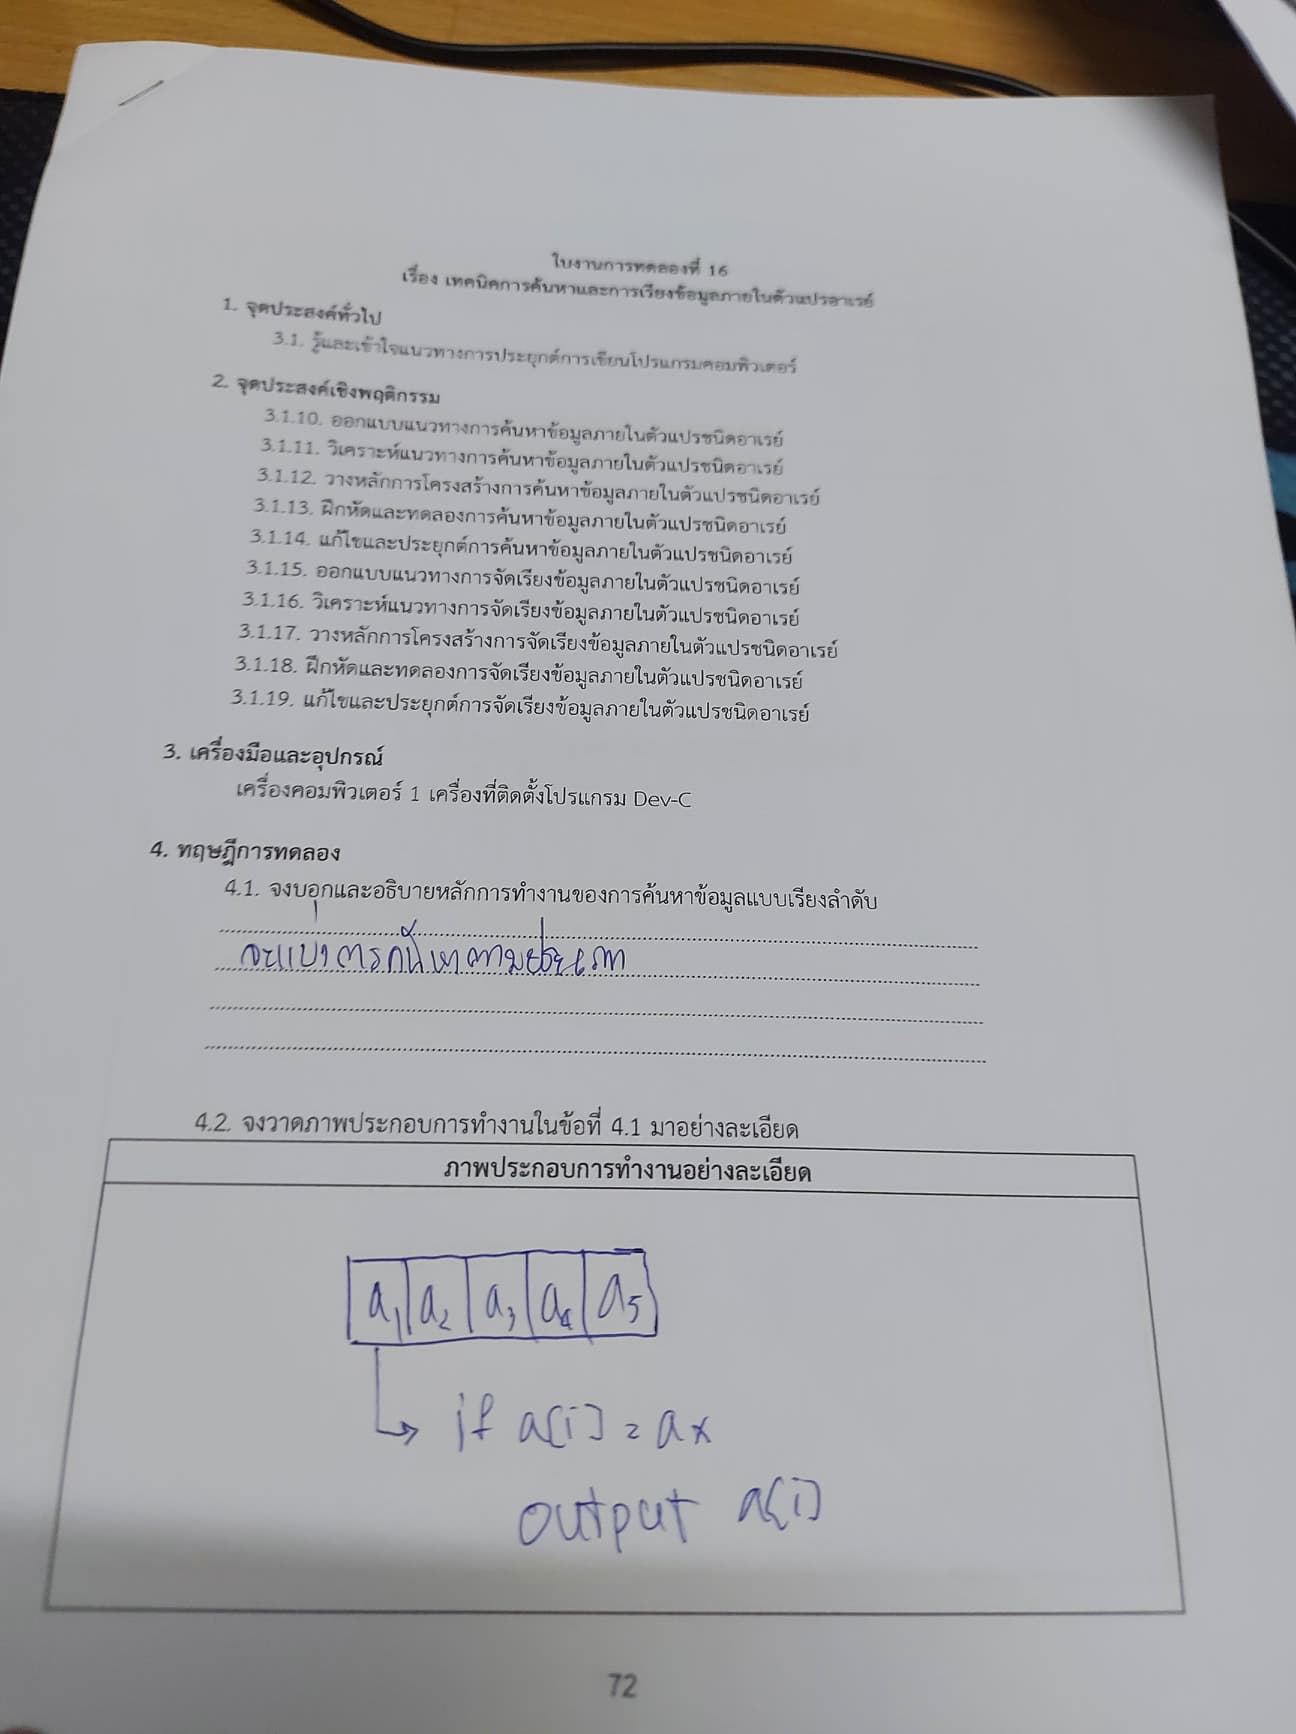 ใบงานการทดลองที่ 16
เรื่อง เทคนิคการค้นหาและการเรียงข้อมูลภายในตัวแปรอาเรย์
1. จุดประสงค์ทั่วไป
3.1. รู้และเข้าใจแนวทางการประยุกต์การเขียนโปรแกรมคอมพิวเตอร์
2. จุดประสงค์เชิงพฤติกรรม
3.1.10. ออกแบบแนวทางการค้นหาข้อมูลภายในตัวแปรชนิดอาเรย์
3.1.11. วิเคราะห์แนวทางการค้นหาข้อมูลภายในตัวแปรชนิดอาเรย์
3.1.12. วางหลักการโครงสร้างการค้นหาข้อมูลภายในตัวแปรชนิดอาเรย์
3.1.13. ฝึกหัดและทดลองการค้นหาข้อมูลภายในตัวแปรชนิดอาเรย์
3.1.14. แก้ไขและประยุกต์การค้นหาข้อมูลภายในตัวแปรชนิดอาเรย์
3.1.15. ออกแบบแนวทางการจัดเรียงข้อมูลภายในตัวแปรชนิดอาเรย์
3.1.16. วิเคราะห์แนวทางการจัดเรียงข้อมูลภายในตัวแปรชนิดอาเรย์
3.1.17. วางหลักการโครงสร้างการจัดเรียงข้อมูลภายในตัวแปรชนิดอาเรย์
3.1.18. ฝึกหัดและทดลองการจัดเรียงข้อมูลภายในตัวแปรชนิดอาเรย์
3.1.19. แก้ไขและประยุกต์การจัดเรียงข้อมูลภายในตัวแปรชนิดอาเรย์
3. เครื่องมือและอุปกรณ์
เครื่องคอมพิวเตอร์ 1 เครื่องที่ติดตั้งโปรแกรม Dev-C
4. ทฤษฎีการทดลอง
4.1. จงบอกและอธิบายหลักการทำงานของการค้นหาข้อมูลแบบเรียงลำดับ
จะแบ่งการค้นหาตามประเภท
4.2. จงวาดภาพประกอบการทำงานในข้อที่ 4.1 มาอย่างละเอียด
ภาพประกอบการทำงานอย่างละเอียด
a1 a2 a3 a4 a5
if a[i] = ax
output a[i]
72